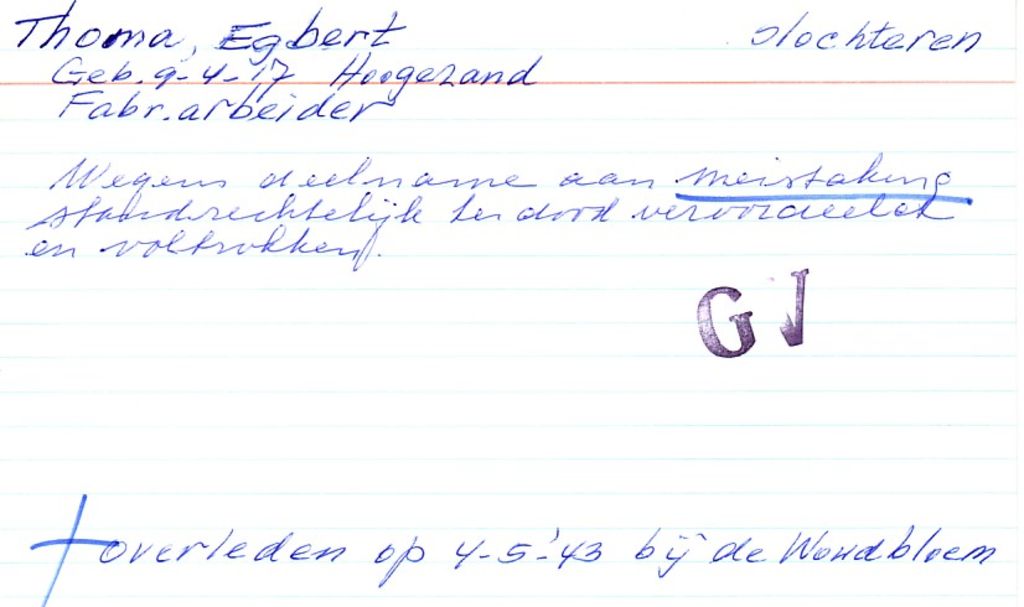 Thoma, Egbert Slochteren
Geb. 9-4-17 Hoogezand
Fabr. arbeider
Wegens deelname aan meistaking
standrechtelijk ter dood veroordeeld
en voltrokken.
G J
overleden op 4-5-'43 bij de Woudbloem